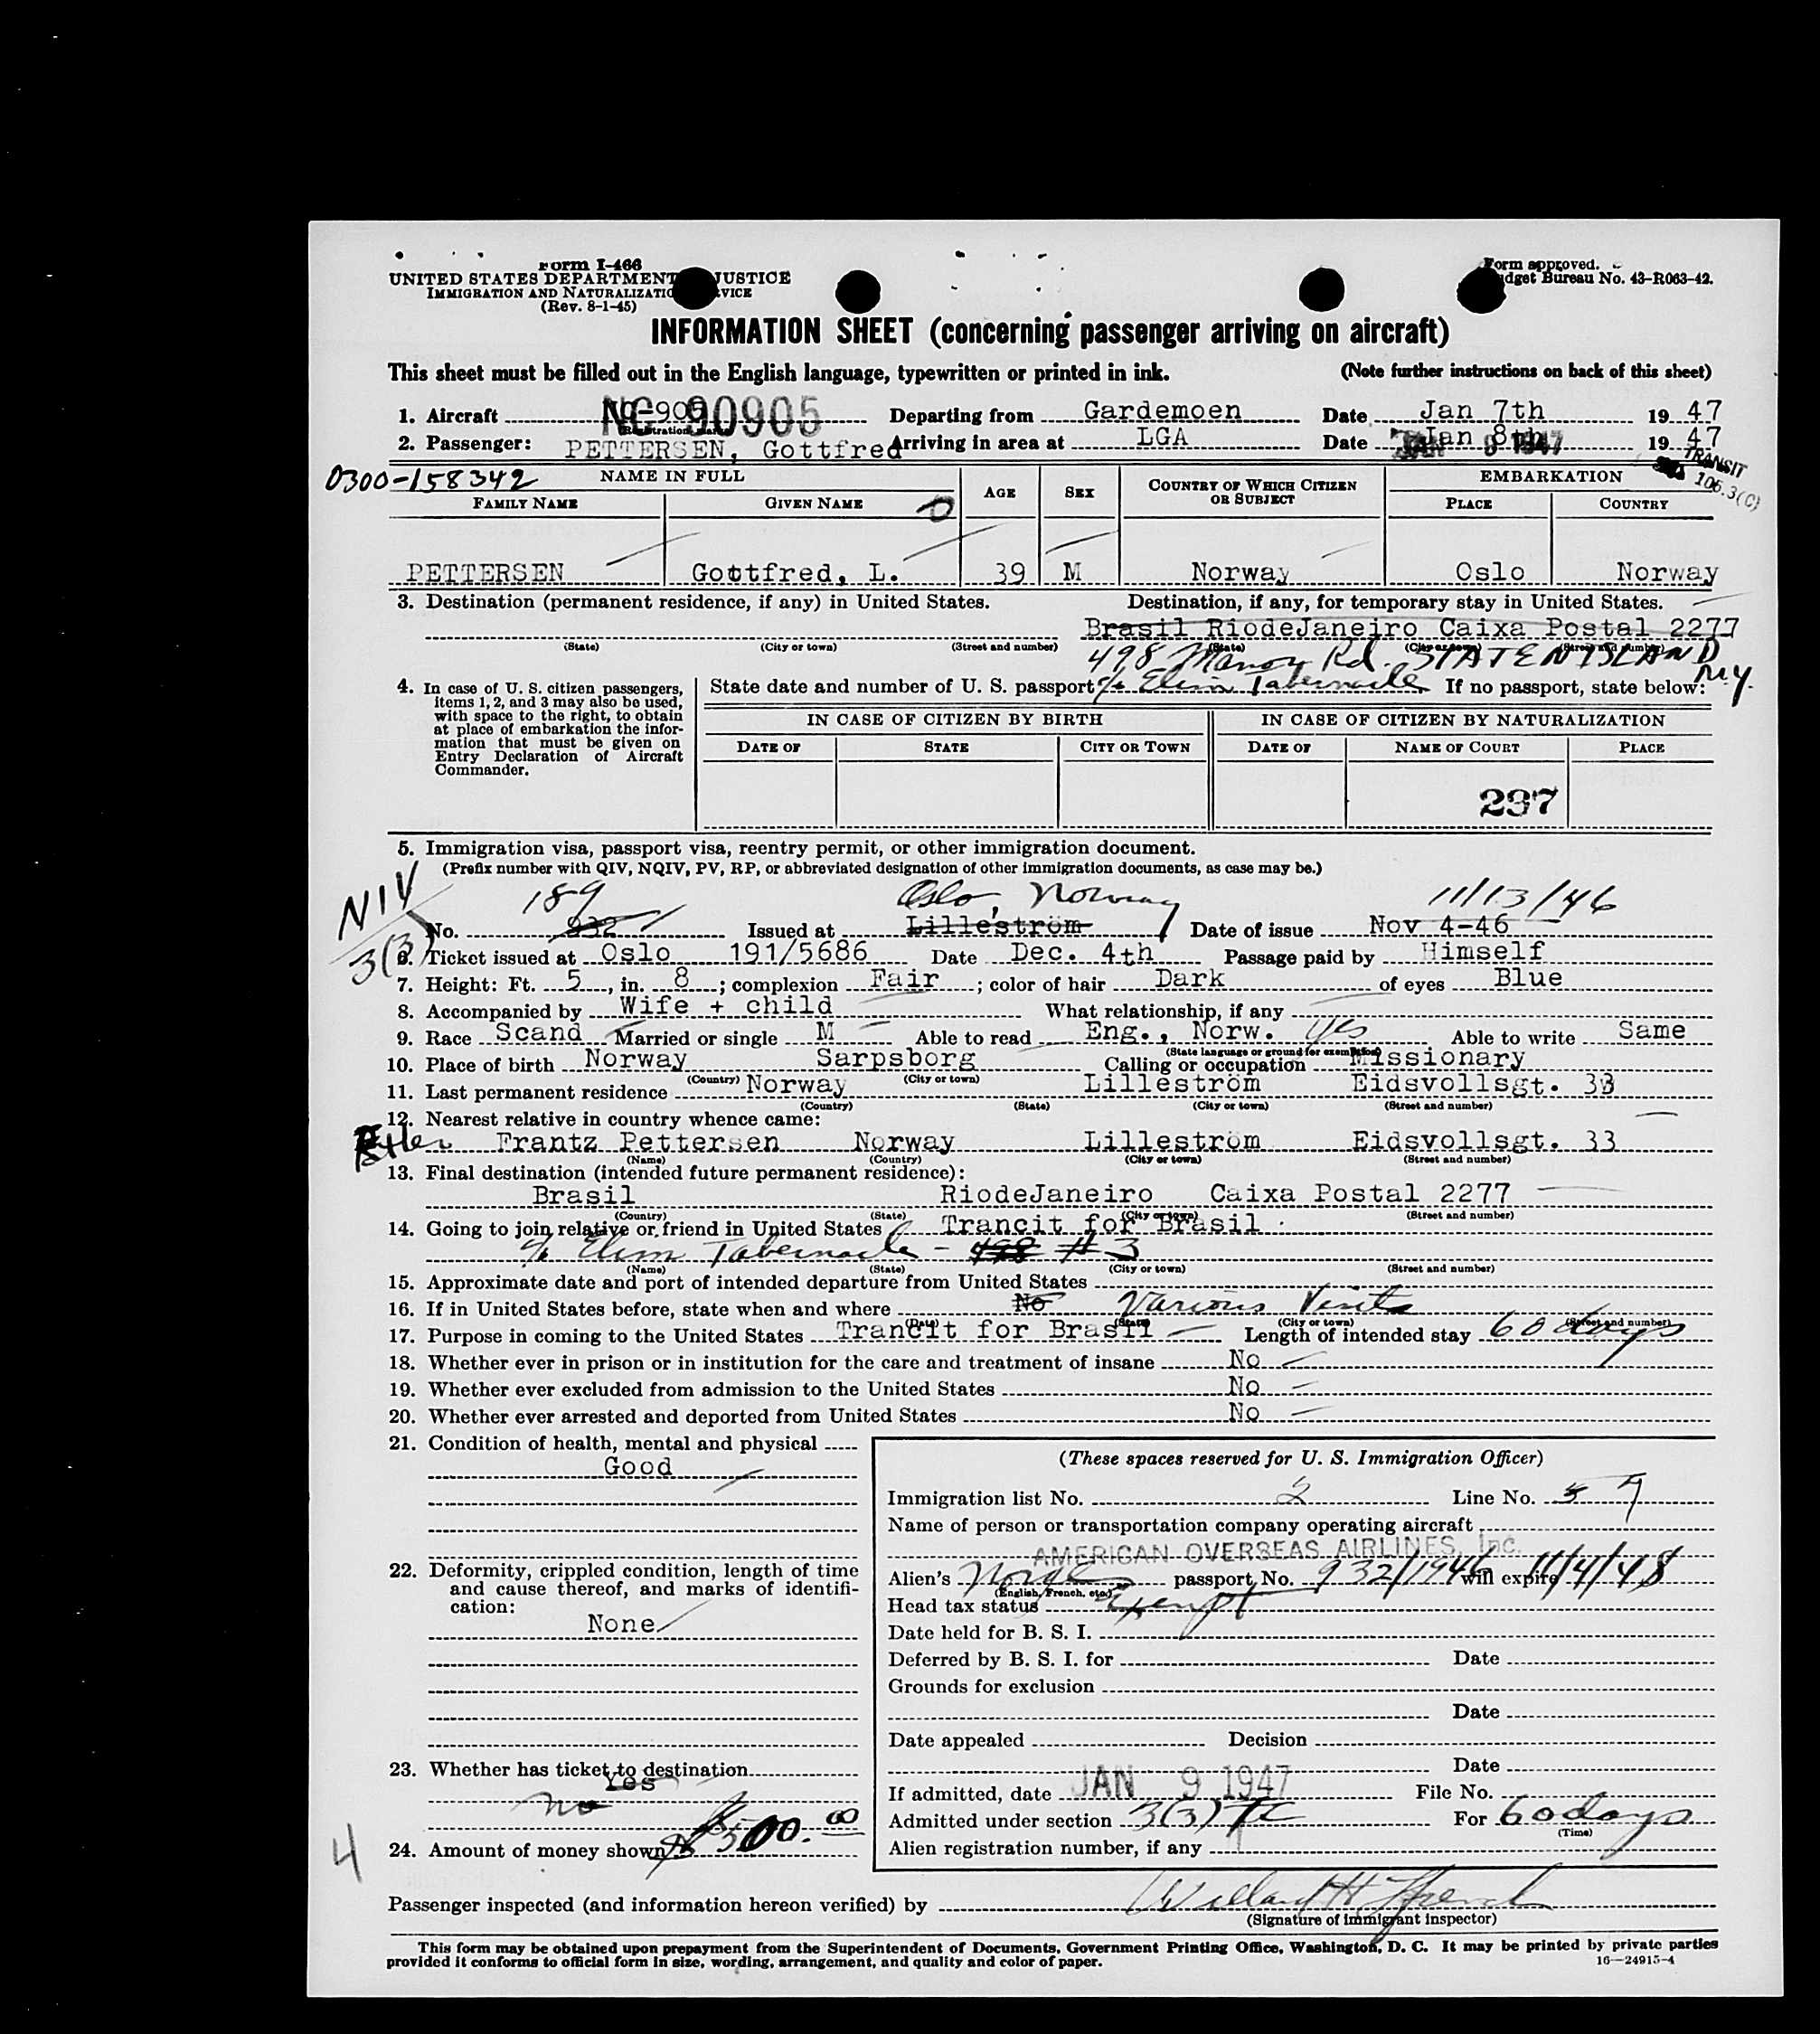 Form I-466
UNITED STATES DEPARTMENT JUSTICE
IMMIGRATION AND NATURALIZATION SERVICE
(Rev. 8-1-45)
Form approved.
Budget Bureau No. 43-R063-42.
INFORMATION SHEET (concerning passenger arriving on aircraft)
This sheet must be filled out in the English language, typewritten or printed in ink. (Note further instructions on back of this sheet)
1. Aircraft NC 90905 Departing from Gardemoen Date Jan 7th 19 47
(Registration marks)
2. Passenger: PETTERSEN, Gottfred Arriving in area at LGA Date Jan 8th JAN 9 1947 19 47
TRANSIT
106.3(C)
0300-158342 NAME IN FULL AGE SEX COUNTRY OF WHICH CITIZEN OR SUBJECT EMBARKATION
FAMILY NAME GIVEN NAME PLACE COUNTRY
PETTERSEN Gottfred, L. 39 M Norway Oslo Norway
3. Destination (permanent residence, if any) in United States. Destination, if any, for temporary stay in United States.
Brasil RiodeJaneiro Caixa Postal 2277
(State) (City or town) (Street and number) (State) (City or town) (Street and number)
498 Manor Rd. STATEN ISLAND N.Y.
4. In case of U. S. citizen passengers, items 1, 2, and 3 may also be used, with space to the right, to obtain at place of embarkation the information that must be given on Entry Declaration of Aircraft Commander.
State date and number of U. S. passport c/o Elim Tabernacle If no passport, state below:
IN CASE OF CITIZEN BY BIRTH IN CASE OF CITIZEN BY NATURALIZATION
DATE OF STATE CITY OR TOWN DATE OF NAME OF COURT PLACE
237
5. Immigration visa, passport visa, reentry permit, or other immigration document.
(Prefix number with QIV, NQIV, PV, RP, or abbreviated designation of other immigration documents, as case may be.)
NIV 189 Oslo, Norway 11/13/46
3(3) No. 932 Issued at Lilleström Date of issue Nov 4-46
6. Ticket issued at Oslo 191/5686 Date Dec. 4th Passage paid by Himself
7. Height: Ft. 5, in. 8; complexion Fair; color of hair Dark of eyes Blue
8. Accompanied by Wife + child What relationship, if any
9. Race Scand Married or single M Able to read Eng., Norw. yes Able to write Same
(State language or ground for exemption)
10. Place of birth Norway Sarpsborg Calling or occupation Missionary
(Country) (City or town)
11. Last permanent residence Norway Lilleström Eidsvollsgt. 33
(Country) (State) (City or town) (Street and number)
12. Nearest relative in country whence came:
Father Frantz Pettersen Norway Lilleström Eidsvollsgt. 33
(Name) (Country) (City or town) (Street and number)
13. Final destination (intended future permanent residence):
Brasil RiodeJaneiro Caixa Postal 2277
(Country) (State) (City or town) (Street and number)
14. Going to join relative or friend in United States Trancit for Brasil
c/o Elim Tabernacle - 498 # 3
(Name) (State) (City or town) (Street and number)
15. Approximate date and port of intended departure from United States
16. If in United States before, state when and where No Various Visits
(Date) (State) (City or town) (Street and number)
17. Purpose in coming to the United States Trancit for Brasil Length of intended stay 60 days
18. Whether ever in prison or in institution for the care and treatment of insane No
19. Whether ever excluded from admission to the United States No
20. Whether ever arrested and deported from United States No
21. Condition of health, mental and physical
Good
22. Deformity, crippled condition, length of time and cause thereof, and marks of identification:
None
23. Whether has ticket to destination
Yes
no
24. Amount of money shown $ 500.00
4
(These spaces reserved for U. S. Immigration Officer)
Immigration list No. 2 Line No. 5 9
Name of person or transportation company operating aircraft
AMERICAN OVERSEAS AIRLINES, Inc.
Alien's Norge passport No. 932/1946 will expire 11/4/48
(English, French, etc.)
Head tax status Exempt
Date held for B. S. I.
Deferred by B. S. I. for Date
Grounds for exclusion
Date
Date appealed Decision
Date
If admitted, date JAN 9 1947 File No.
Admitted under section 3(3) For 60 days
(Time)
Alien registration number, if any
Passenger inspected (and information hereon verified) by Willard H.
(Signature of immigrant inspector)
This form may be obtained upon prepayment from the Superintendent of Documents, Government Printing Office, Washington, D. C. It may be printed by private parties
provided it conforms to official form in size, wording, arrangement, and quality and color of paper.
16—24915-4